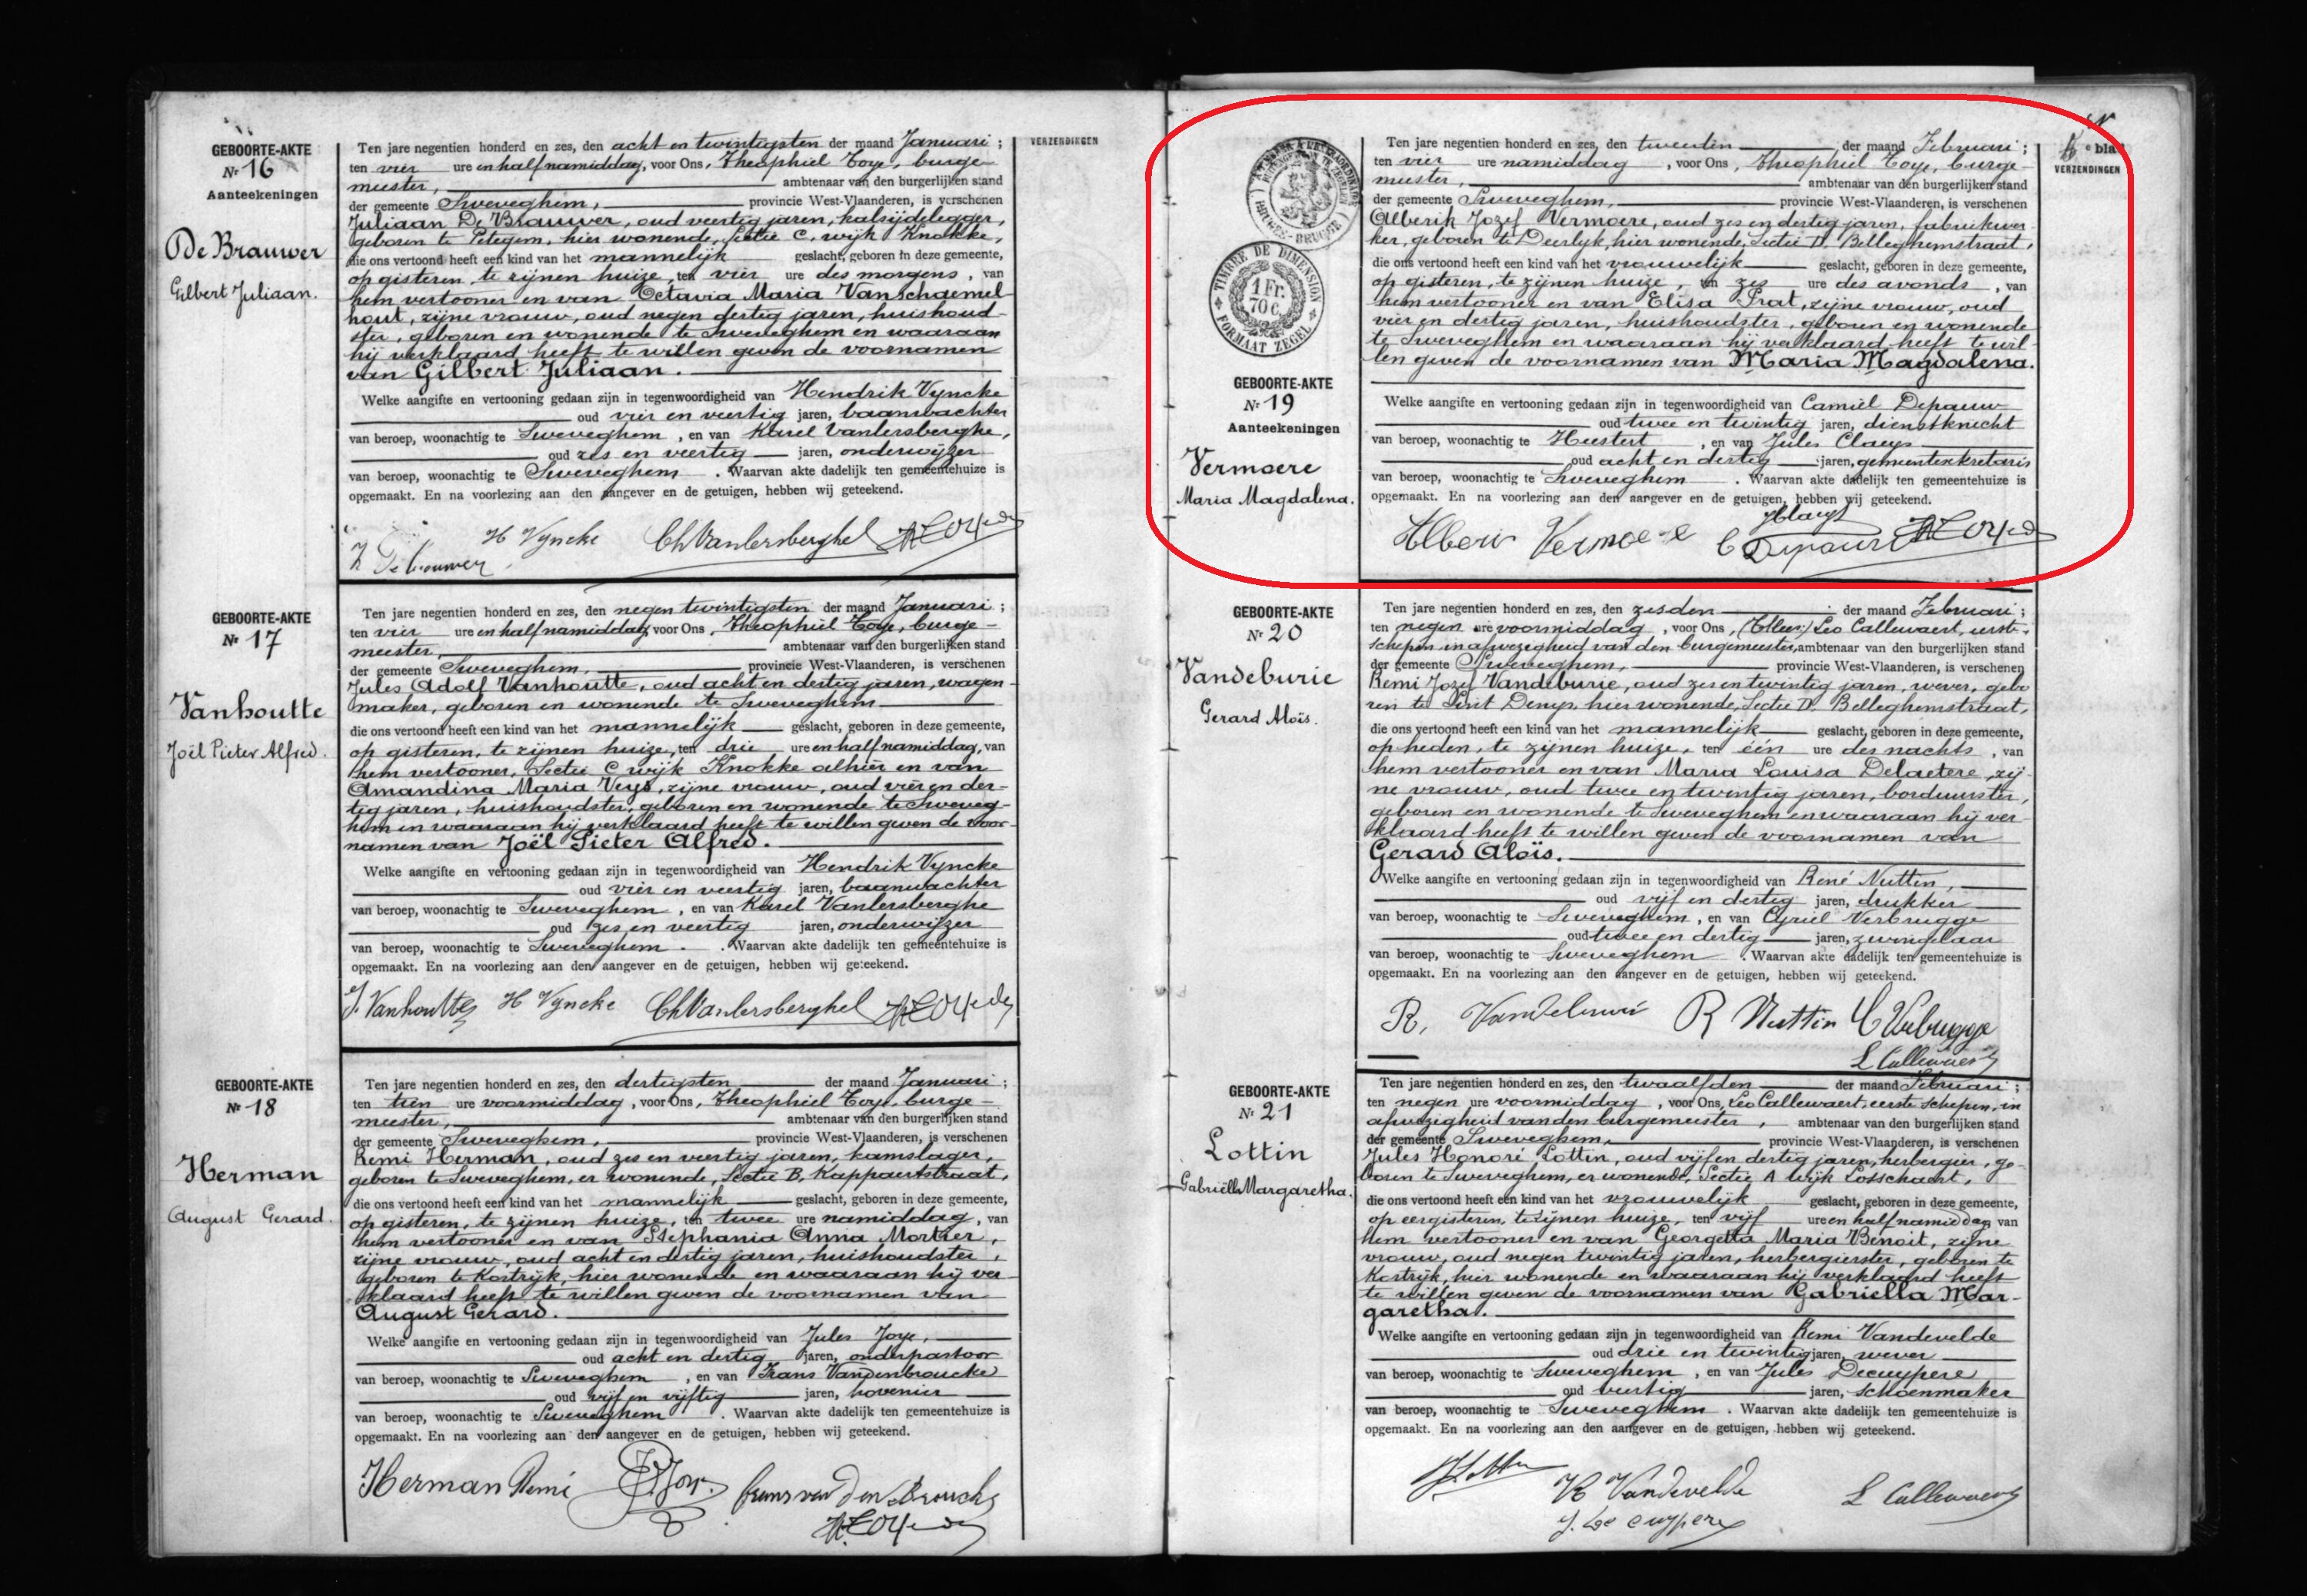 GEBOORTE-AKTE
Nr 16
Aanteekeningen
De Brauwer
Gilbert Juliaan.
Ten jare negentien honderd en zes, den acht en twintigsten der maand Januari ;
ten vier ure en half namiddag, voor Ons, Theophiel Toye, burge-
meester, ambtenaar van den burgerlijken stand
der gemeente Sweveghem, provincie West-Vlaanderen, is verschenen
Juliaan De Brauwer, oud veertig jaren, kalsijdelegger,
geboren te Petegem, hier wonende, Sectie C, wijk Knokke,
die ons vertoond heeft een kind van het mannelijk geslacht, geboren in deze gemeente,
op gisteren, te zijnen huize, ten vier ure des morgens, van
hem vertooner en van Octavia Maria Vanschaemel-
hout, zijne vrouw, oud negen dertig jaren, huishoud-
ster, geboren en wonende te Sweveghem en waaraan
hij verklaard heeft te willen geven de voornamen
van Gilbert Juliaan.
Welke aangifte en vertooning gedaan zijn in tegenwoordigheid van Hendrik Vyncke
oud vier en veertig jaren, baanwachter
van beroep, woonachtig te Sweveghem, en van Karel Vanlersberghe,
oud zes en veertig jaren, onderwijzer
van beroep, woonachtig te Sweveghem. Waarvan akte dadelijk ten gemeentehuize is
opgemaakt. En na voorlezing aan den aangever en de getuigen, hebben wij geteekend.
H Vyncke ChVanlersberghe
VERZENDINGEN
GEBOORTE-AKTE
Nr 17
Vanhoutte
Joël Pieter Alfred.
Ten jare negentien honderd en zes, den negen twintigsten der maand Januari ;
ten vier ure en half namiddag, voor Ons, Theophiel Toye, burge-
meester, ambtenaar van den burgerlijken stand
der gemeente Sweveghem, provincie West-Vlaanderen, is verschenen
Jules Adolf Vanhoutte, oud acht en dertig jaren, wagen-
maker, geboren en wonende te Sweveghem
die ons vertoond heeft een kind van het mannelijk geslacht, geboren in deze gemeente,
op gisteren, te zijnen huize, ten drie ure en half namiddag, van
hem vertooner, Sectie C wijk Knokke alhier en van
Amandina Maria Veys, zijne vrouw, oud vier en der-
tig jaren, huishoudster, geboren en wonende te Sweveg-
hem en waaraan hij verklaard heeft te willen geven de voor-
namen van Joël Pieter Alfred.
Welke aangifte en vertooning gedaan zijn in tegenwoordigheid van Hendrik Vyncke
oud vier en veertig jaren, baanwachter
van beroep, woonachtig te Sweveghem, en van Karel Vanlersberghe
oud zes en veertig jaren, onderwijzer
van beroep, woonachtig te Sweveghem. Waarvan akte dadelijk ten gemeentehuize is
opgemaakt. En na voorlezing aan den aangever en de getuigen, hebben wij geteekend.
J. Vanhoutte H Vyncke ChVanlersberghe
GEBOORTE-AKTE
Nr 18
Herman
August Gerard.
Ten jare negentien honderd en zes, den dertigsten der maand Januari ;
ten tien ure voormiddag, voor Ons, Theophiel Toye, burge-
meester, ambtenaar van den burgerlijken stand
der gemeente Sweveghem, provincie West-Vlaanderen, is verschenen
Remi Herman, oud zes en veertig jaren, kamslager,
geboren te Sweveghem, er wonende, Sectie B, Kappaertstraat,
die ons vertoond heeft een kind van het mannelijk geslacht, geboren in deze gemeente,
op gisteren, te zijnen huize, ten twee ure namiddag, van
hem vertooner en van Stephania Anna Mortier,
zijne vrouw, oud acht en dertig jaren, huishoudster,
geboren te Kortrijk, hier wonende en waaraan hij ver-
klaard heeft te willen geven de voornamen van
August Gerard.
Welke aangifte en vertooning gedaan zijn in tegenwoordigheid van Jules Joye,
oud acht en dertig jaren, onderpastoor
van beroep, woonachtig te Sweveghem, en van Frans Vandenbroucke
oud vijf en vijftig jaren, hovenier
van beroep, woonachtig te Sweveghem. Waarvan akte dadelijk ten gemeentehuize is
opgemaakt. En na voorlezing aan den aangever en de getuigen, hebben wij geteekend.
Herman Remi
BRUGES-BRUGGE
TIMBRE DE DIMENSION
1 Fr.
70 c.
FORMAAT ZEGEL
GEBOORTE-AKTE
Nr 19
Aanteekeningen
Vermoere
Maria Magdalena.
blad
VERZENDINGEN
Ten jare negentien honderd en zes, den tweeden der maand Februari ;
ten vier ure namiddag, voor Ons, Theophiel Toye, burge-
meester, ambtenaar van den burgerlijken stand
der gemeente Sweveghem, provincie West-Vlaanderen, is verschenen
Alberik Jozef Vermoere, oud zes en dertig jaren, fabriekwer-
ker, geboren te Deerlyk, hier wonende, Sectie D. Belleghemstraat,
die ons vertoond heeft een kind van het vrouwelijk geslacht, geboren in deze gemeente,
op gisteren, te zijnen huize, ten zes ure des avonds, van
hem vertooner en van Elisa Prat, zijne vrouw, oud
vier en dertig jaren, huishoudster, geboren en wonende
te Sweveghem en waaraan hij verklaard heeft te wil-
len geven de voornamen van Maria Magdalena.
Welke aangifte en vertooning gedaan zijn in tegenwoordigheid van Camiel Depauw
oud twee en twintig jaren, dienstknecht
van beroep, woonachtig te Heestert, en van Jules Claeys
oud acht en dertig jaren, gemeentesekretaris
van beroep, woonachtig te Sweveghem. Waarvan akte dadelijk ten gemeentehuize is
opgemaakt. En na voorlezing aan den aangever en de getuigen, hebben wij geteekend.
Vermoere C Depauw
GEBOORTE-AKTE
Nr 20
Vandeburie
Gerard Aloïs.
Ten jare negentien honderd en zes, den zesden der maand Februari ;
ten negen ure voormiddag, voor Ons, Leo Callewaert, eerste
schepen, in afwezigheid van den burgemeester, ambtenaar van den burgerlijken stand
der gemeente Sweveghem, provincie West-Vlaanderen, is verschenen
Remi Jozef Vandeburie, oud zes en twintig jaren, wever, gebo
ren te Sint Denys, hier wonende, Sectie D. Belleghemstraat,
die ons vertoond heeft een kind van het mannelijk geslacht, geboren in deze gemeente,
op heden, te zijnen huize, ten één ure des nachts, van
hem vertooner en van Maria Louisa Delaetere, zij-
ne vrouw, oud twee en twintig jaren, borduurster,
geboren en wonende te Sweveghem en waaraan hij ver-
klaard heeft te willen geven de voornamen van
Gerard Aloïs.
Welke aangifte en vertooning gedaan zijn in tegenwoordigheid van René Nuttin,
oud vijf en dertig jaren, drukker
van beroep, woonachtig te Sweveghem, en van Cyriel Verbrugge
oud twee en dertig jaren, zwingelaar
van beroep, woonachtig te Sweveghem. Waarvan akte dadelijk ten gemeentehuize is
opgemaakt. En na voorlezing aan den aangever en de getuigen, hebben wij geteekend.
R. Vandeburie R Nuttin C Verbrugge
L Callewaert
GEBOORTE-AKTE
Nr 21
Lottin
Gabriëlla Margaretha.
Ten jare negentien honderd en zes, den twaalfden der maand Februari ;
ten negen ure voormiddag, voor Ons, Leo Callewaert, eerste schepen, in
afwezigheid van den burgemeester, ambtenaar van den burgerlijken stand
der gemeente Sweveghem, provincie West-Vlaanderen, is verschenen
Jules Honoré Lottin, oud vijf en dertig jaren, herbergier, ge-
boren te Sweveghem, er wonende, Sectie A wijk Losschaert,
die ons vertoond heeft een kind van het vrouwelijk geslacht, geboren in deze gemeente,
op eergisteren, te zijnen huize, ten vijf ure en half namiddag van
hem vertooner en van Georgetta Maria Benoit, zijne
vrouw, oud negen twintig jaren, herbergierster, geboren te
Kortrijk, hier wonende en waaraan hij verklaard heeft
te willen geven de voornamen van Gabriella Mar-
garetha.
Welke aangifte en vertooning gedaan zijn in tegenwoordigheid van Remi Vandevelde
oud drie en twintig jaren, wever
van beroep, woonachtig te Sweveghem, en van Jules Decuypere
oud veertig jaren, schoenmaker
van beroep, woonachtig te Sweveghem. Waarvan akte dadelijk ten gemeentehuize is
opgemaakt. En na voorlezing aan den aangever en de getuigen, hebben wij geteekend.
R Vandevelde L Callewaert
J. De cuypere